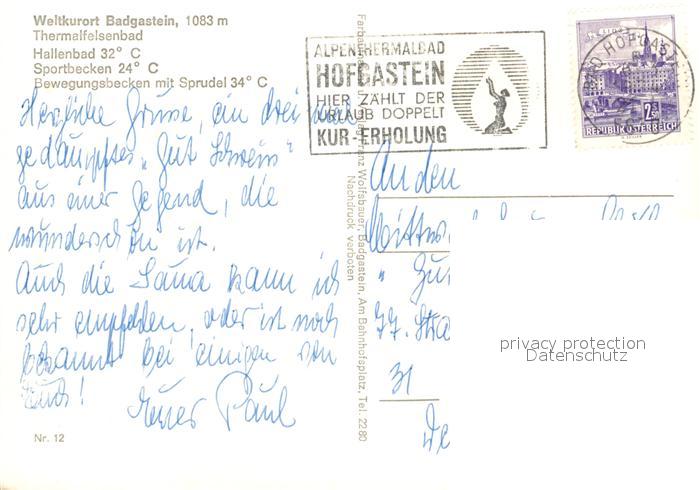 Weltkurort Badgastein, 1083 m
Thermalfelsenbad
Hallenbad 32° C
Sportbecken 24° C
Bewegungsbecken mit Sprudel 34° C
Herzliche Grüsse, ein drei
"Gut
aus einer Gegend, die
wunderschön ist.
Auch die Sauna kann ich
sehr empfehlen, oder ist noch
bekannt bei einigen von
Euch!
Euer Paul
Nr. 12
Franz Wolfsbauer, Badgastein, Am Bahnhofsplatz, Tel. 2280
Nachdruck verboten
ALPENTHERMALBAD
HOFGASTEIN
HIER ZÄHLT DER
URLAUB DOPPELT
KUR-ERHOLUNG
BAD HOFGAST
2.50
REPUBLIK ÖSTERREICH
An den
31
privacy protection
Datenschutz